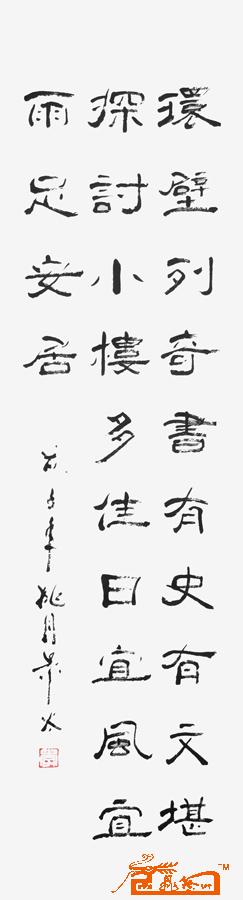 環壁列奇書有史有文堪
探討小樓多佳日宜風宜
雨足安居